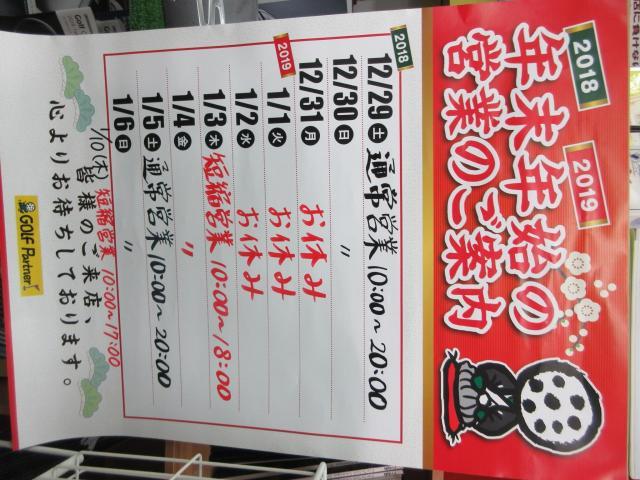 2018
2019
年末年始の
営業のご案内
2018
12/29 土 通常営業 10:00～20:00
12/30 日 〃
12/31 月 お休み
2019
1/1 火 お休み
1/2 水 お休み
1/3 木 短縮営業 10:00～18:00
1/4 金 〃
1/5 土 通常営業 10:00～20:00
1/6 日 〃
1/10(木) 短縮営業 10:00～17:00
皆様のご来店、
心よりお待ちしております。
GOLF Partner